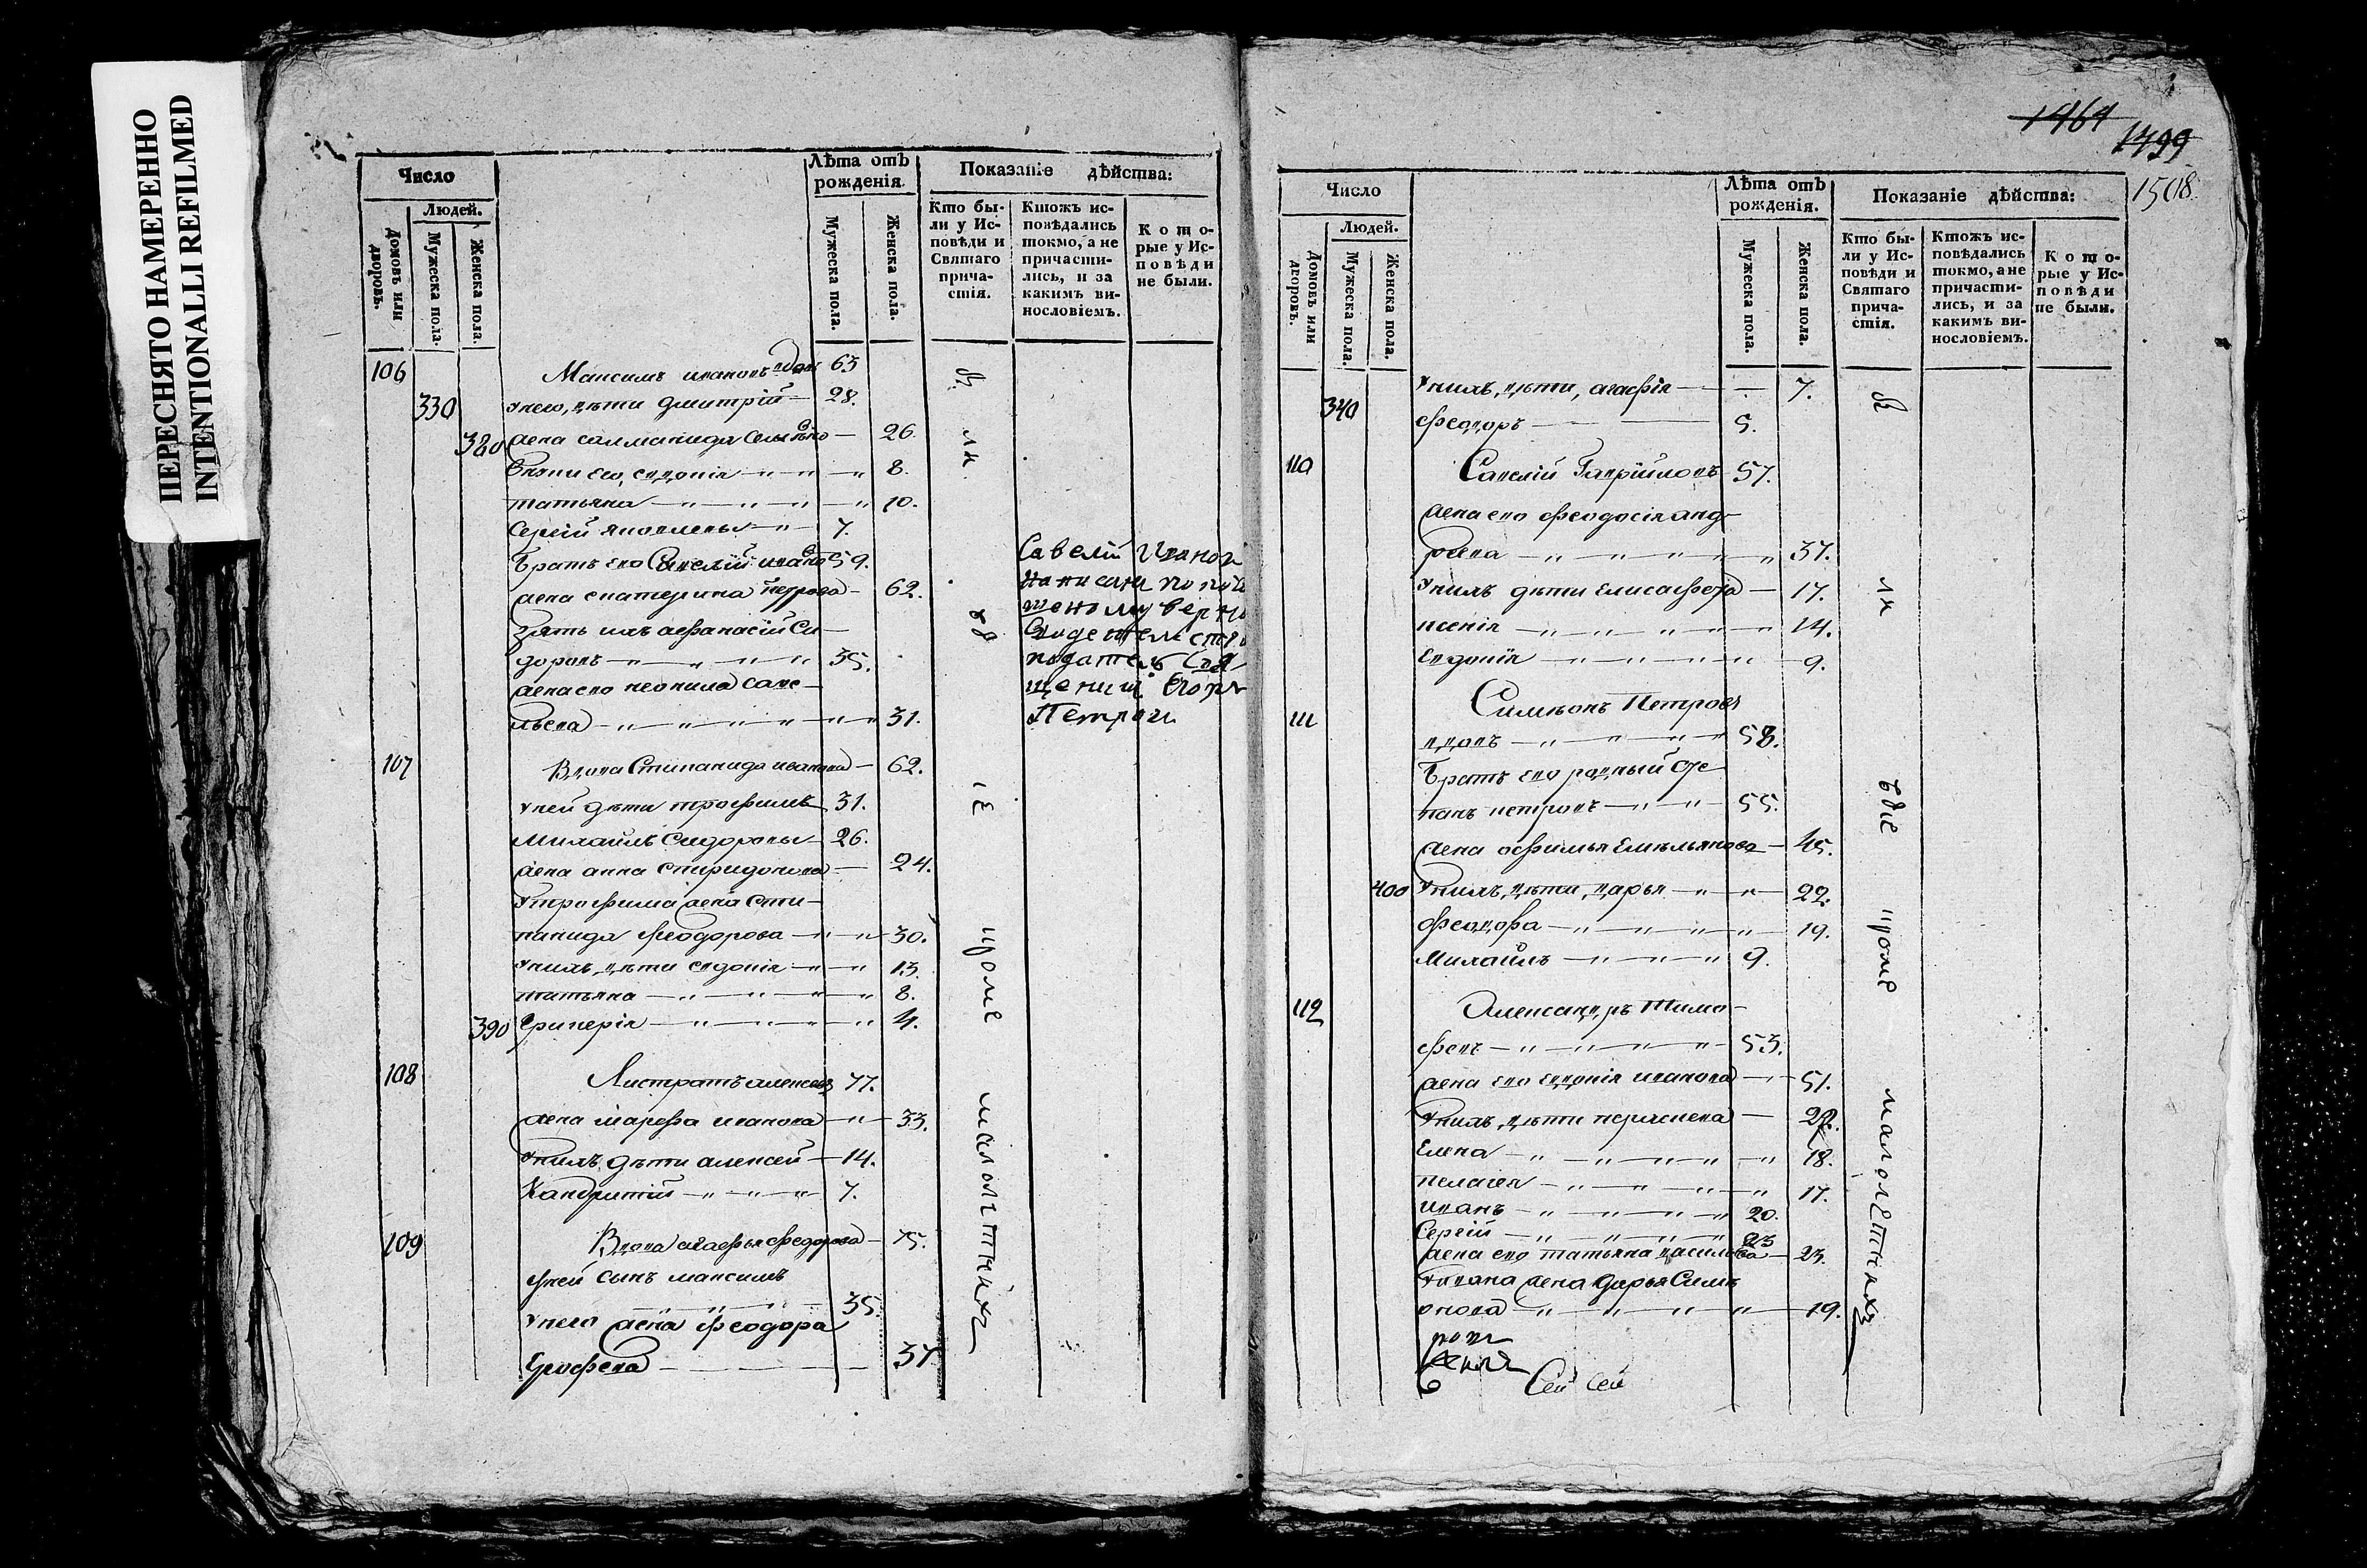 ПЕРЕСНЯТО НАМЕРЕННО
INTENTIONALLI REFILMED
Число
Лѣта отъ рожденія.
Показаніе дѣйства:
Людей.
Домовъ или дворовъ.
Мужеска пола.
Женска пола.
Мужеска пола.
Женска пола.
Кто бы-
ли у Ис-
повѣди и
Святаго
прича-
стія.
Ктожъ ис-
повѣдались
токмо, а не
причасти-
лись, и за
какимъ ви-
нословіемъ.
Кото-
рые у Ис-
повѣди
не были.
106 Максимъ ивановъ вдов 63
330 у него дѣти дмитрій 28.
380 жена саломанида 26.
его, евдокія 8.
татьяна 10.
Сергій яковлевы 7.
Братъ его Савелій 59.
жена екатерина петрова 62.
зять ихъ афанасій Си-
доровъ 35.
жена его неонила Саве-
льева 31.
Савелій Иванов
написан по
Петров
107 Вдова Стипанида иванова 62.
у ней дѣти трофимъ 31.
Михаилъ Сидоровы 26.
жена анна спиридонова 24.
У трофима жена Сти-
панида феодорова 30.
у нихъ дѣти евдокія 13.
татьяна 8.
390 4.
108 Листратъ алексеев 77.
жена марфа иванова 33.
у нихъ дѣти алексей 14.
Кандратій 7.
109 Вдова агафья федорова 75.
у ней сынъ максимъ
35.
у него жена феодора
Ерофева 37
кроме малолетныхъ
1464
1499
1508.
Число
Лѣта отъ рожденія.
Показаніе дѣйства:
Людей.
Домовъ или дворовъ.
Мужеска пола.
Женска пола.
Мужеска пола.
Женска пола.
Кто бы-
ли у Ис-
повѣди и
Святаго
прича-
стія.
Ктожъ ис-
повѣдались
токмо, а не
причасти-
лись, и за
какимъ ви-
нословіемъ.
Кото-
рые у Ис-
повѣди
не были.
у нихъ, дѣти, агафія 7.
340 феодоръ 5.
110 Савелій Гаврійловъ 57.
жена его феодосія анд-
реева 37.
У нихъ дѣти елисафета 17.
ксенія 14.
евдокія 9.
111 Симионъ Петровъ
вдовъ 58.
Братъ его родный Сте-
панъ петровъ 55.
жена афимья Емельянова 45.
400 У нихъ, дѣти, дарья 22.
феодора 19.
Михаилъ 9.
112 Александръ Тимо-
феевъ 53.
жена его евдокія иванова 51.
У нихъ, дѣти параскева
Елена 18.
пелагея 17.
иванъ 20.
Сергій 23
жена его татьяна василева 23.
У ивана жена дарья Симе
онова 19.
кроме малолетныхъ
Сей Сей